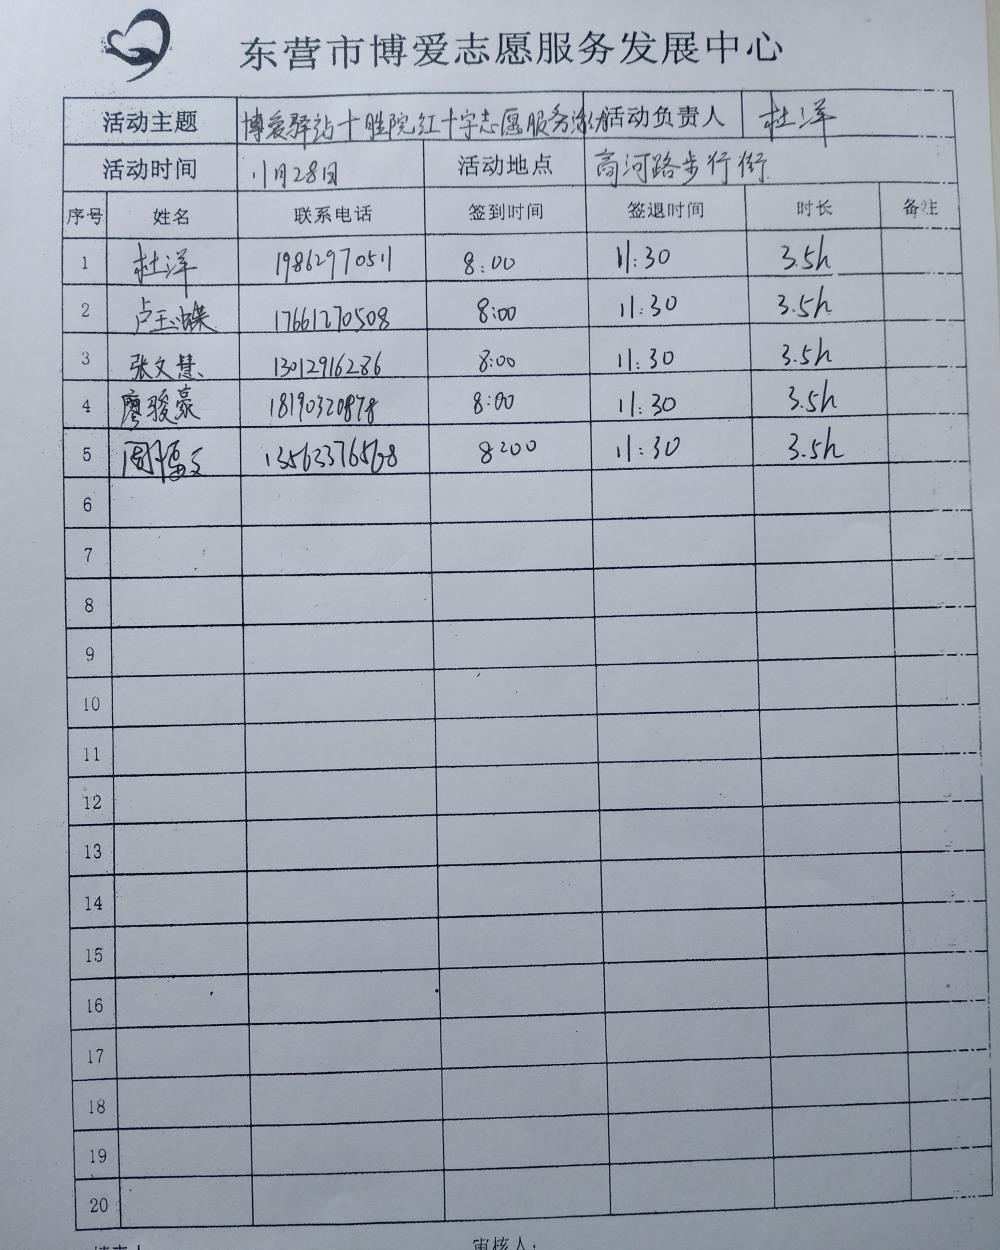 东营市博爱志愿服务发展中心
活动主题 博爱驿站十胜院红十字志愿服务活动 活动负责人 杜洋
活动时间 11月28日 活动地点 商河路步行街
序号 姓名 联系电话 签到时间 签退时间 时长 备注
1 杜洋 19862970511 8:00 11:30 3.5h
2 卢玉 17661270508 8:00 11:30 3.5h
3 张文慧 13012916286 8:00 11:30 3.5h
4 廖骏豪 18190320878 8:00 11:30 3.5h
5 周 文 13563376568 8:00 11:30 3.5h
6
7
8
9
10
11
12
13
14
15
16
17
18
19
20
审核人: